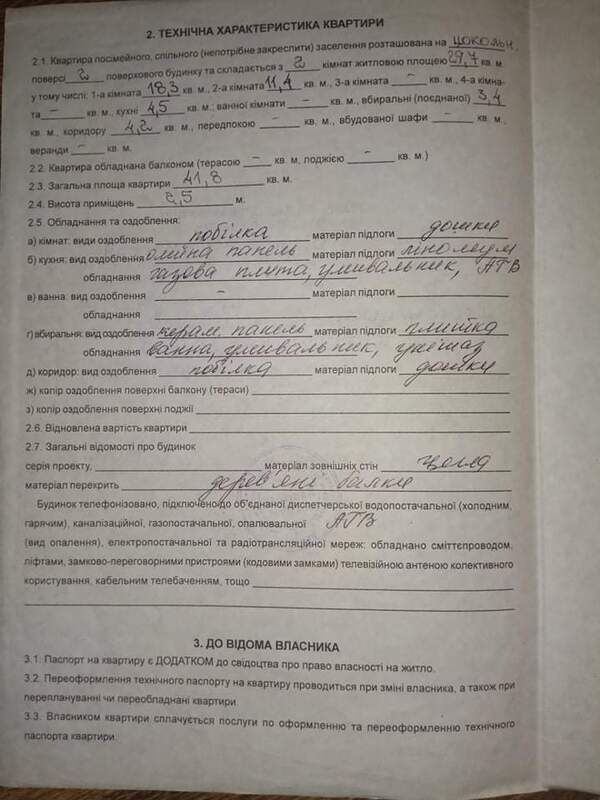 2. ТЕХНІЧНА ХАРАКТЕРИСТИКА КВАРТИРИ
2.1. Квартира посімейного, спільного (непотрібне закреслити) заселення розташована на цокольн.
поверсі 2 поверхового будинку та складається з 2 кімнат житловою площею 29,7 кв. м.
у тому числі: 1-а кімната 18,3 кв. м., 2-а кімната 11,4 кв. м., 3-а кімната – кв. м., 4-а кімна-
та – кв. м., кухні 4,5 кв. м.; ванної кімнати – кв. м., вбиральні (поєднаної) 3,4
кв. м., коридору 4,2 кв. м., передпокою – кв. м., вбудованої шафи – кв. м.,
веранди – кв. м.
2.2. Квартира обладнана балконом (терасою – кв. м, лоджією – кв. м.)
2.3. Загальна площа квартири 41,8 кв. м.
2.4. Висота приміщень 2,5 м.
2.5. Обладнання та оздоблення:
а) кімнат: види оздоблення побілка матеріал підлоги дошки
б) кухня: вид оздоблення олійна панель матеріал підлоги лінолеум
обладнання газова плита, умивальник, АТВ
в) ванна: вид оздоблення – матеріал підлоги
обладнання
г) вбиральня: вид оздоблення керам. панель матеріал підлоги плитка
обладнання ванна, умивальник, унітаз
д) коридор: вид оздоблення побілка матеріал підлоги дошки
ж) колір оздоблення поверхні балкону (тераси)
з) колір оздоблення поверхні лоджії
2.6. Відновлена вартість квартири
2.7. Загальні відомості про будинок
серія проекту, матеріал зовнішніх стін цегла
матеріал перекрить дерев'яні балки
Будинок телефонізовано, підключено до об'єднаної диспетчерської водопостачальної (холодним,
гарячим), каналізаційної, газопостачальної, опалювальної АТВ
(вид опалення), електропостачальної та радіотрансляційної мереж: обладнано сміттєпроводом,
ліфтами, замково-переговорними пристроями (кодовими замками) телевізійною антеною колективного
користування, кабельним телебаченням, тощо
3. ДО ВІДОМА ВЛАСНИКА
3.1. Паспорт на квартиру є ДОДАТКОМ до свідоцтва про право власності на житло.
3.2. Переоформлення технічного паспорту на квартиру проводиться при зміні власника, а також при
переплануванні чи переобладнані квартири.
3.3. Власником квартири сплачується послуги по оформленню та переоформленню технічного
паспорта квартири.